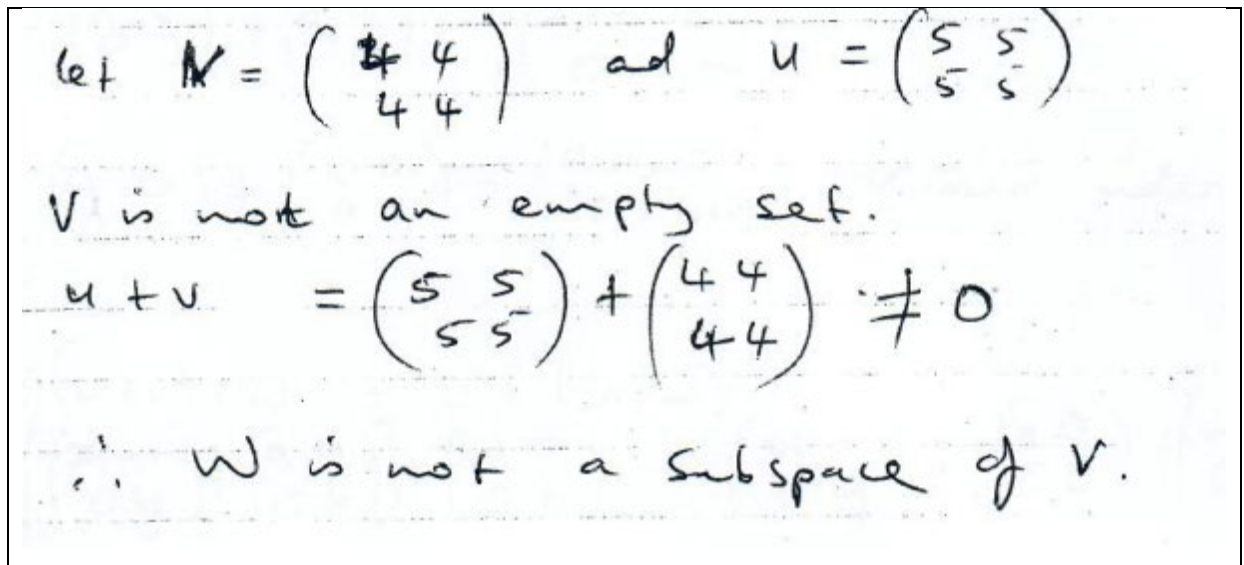 let V = ( 4 4 ) ad u = ( 5 5 )
4 4 5 5
V is not an empty set.
u + v = ( 5 5 ) + ( 4 4 ) ≠ 0
5 5 4 4
∴ W is not a subspace of V.